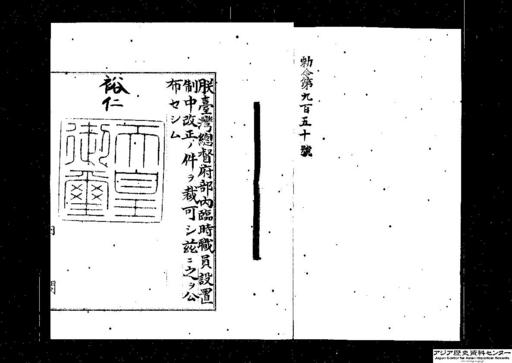 勅令第九百五十號
朕臺灣總督府部內臨時職員設置
制中改正ノ件ヲ裁可シ茲ニ之ヲ公
布セシム
裕仁
天皇
御璽
アジア歴史資料センター
Japan Center for Asian Historical Records